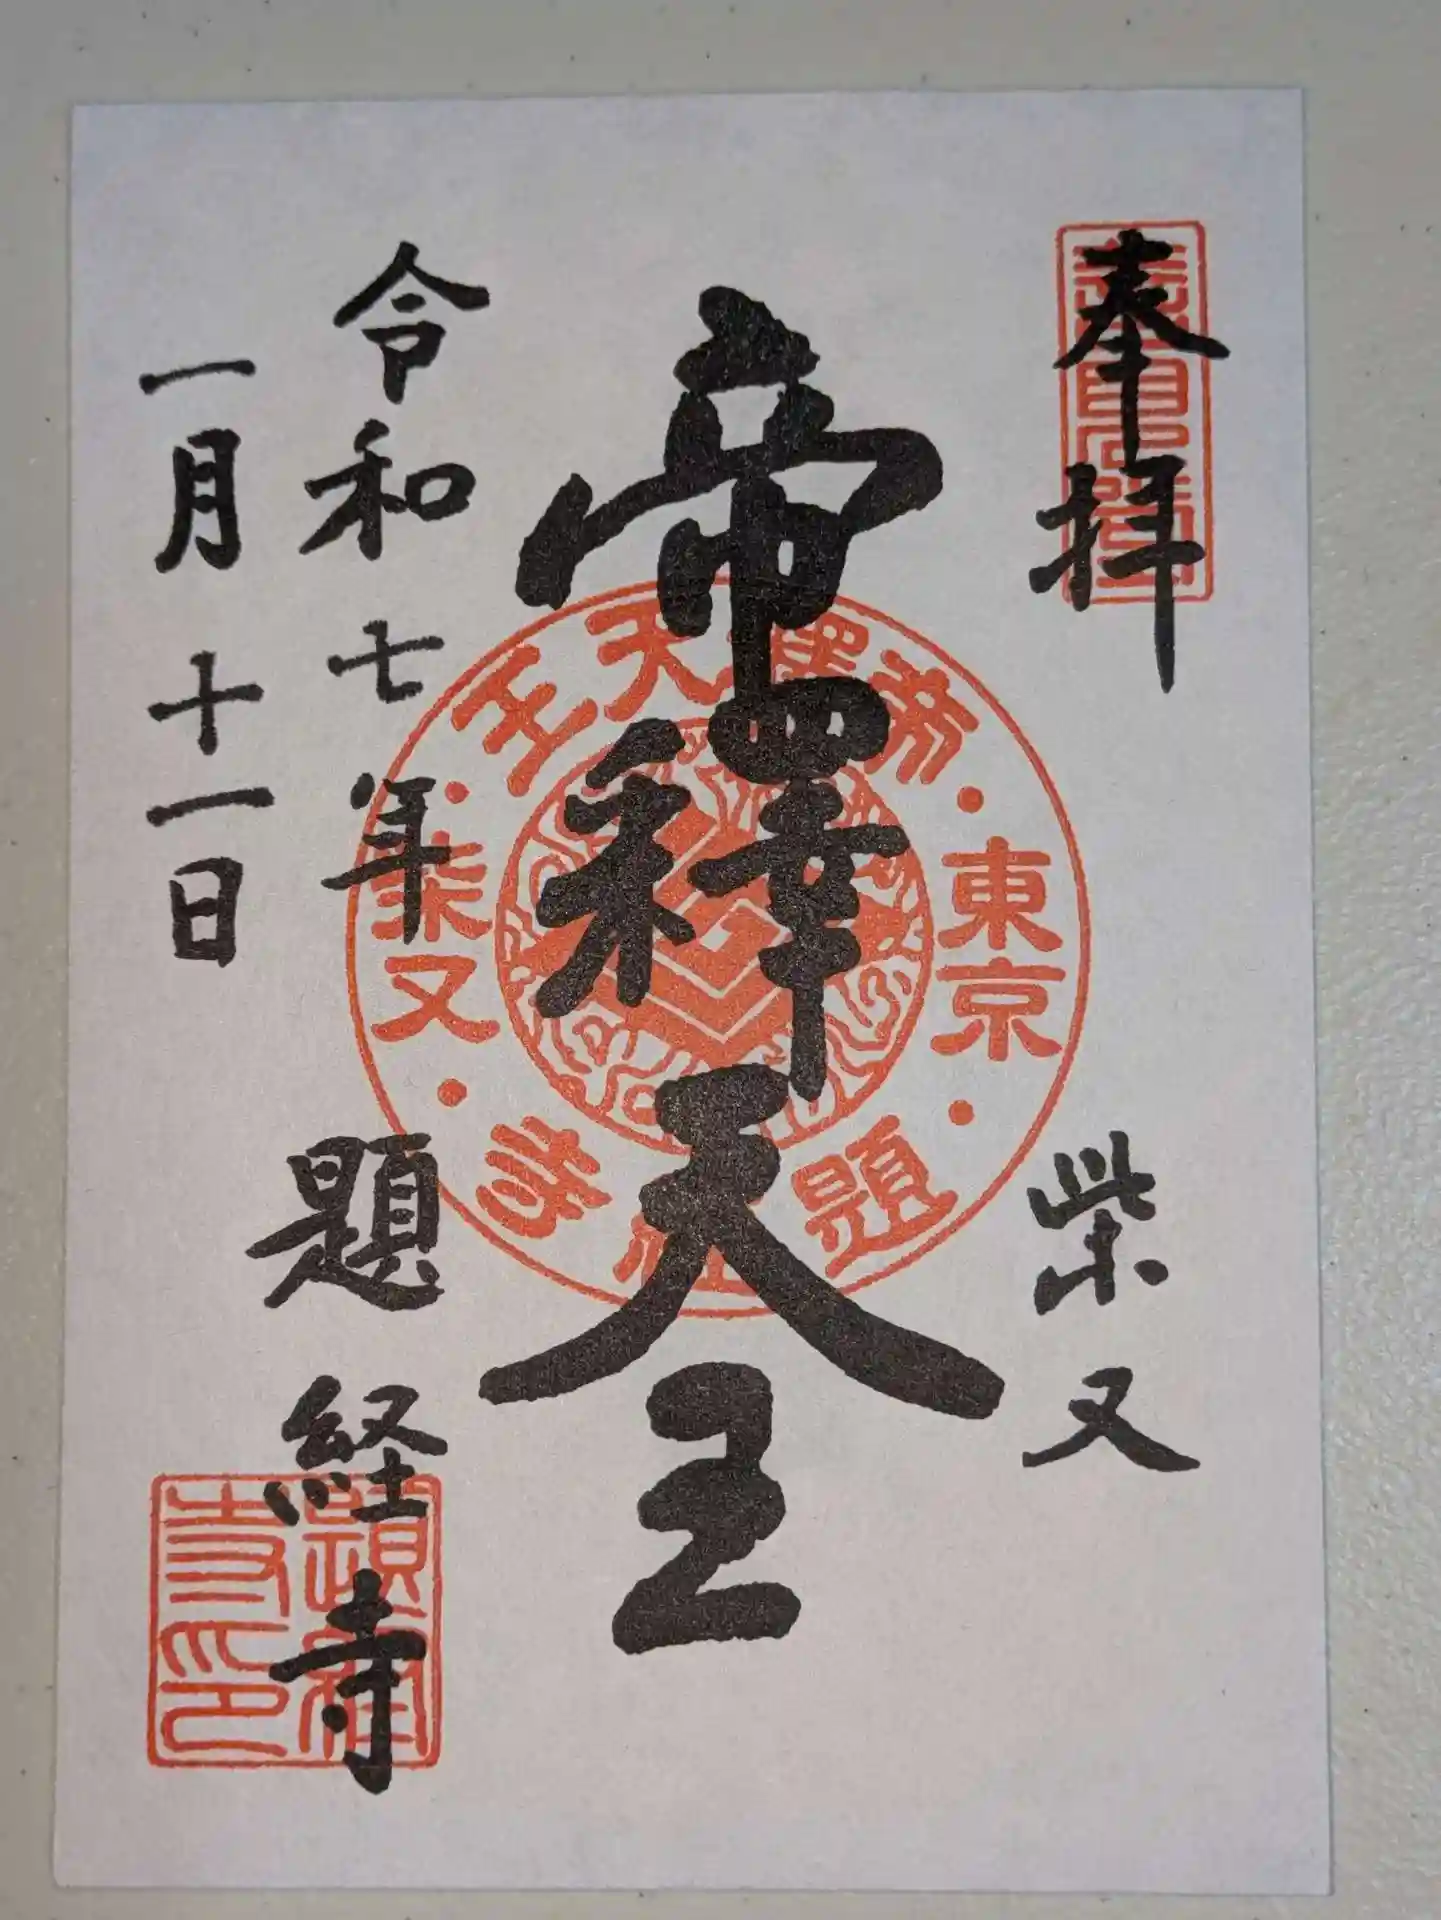 奉拝
柴又
帝釋天王
令和七年
一月十一日
題経寺
帝釋天王
東京
柴又
題経寺
題経寺印